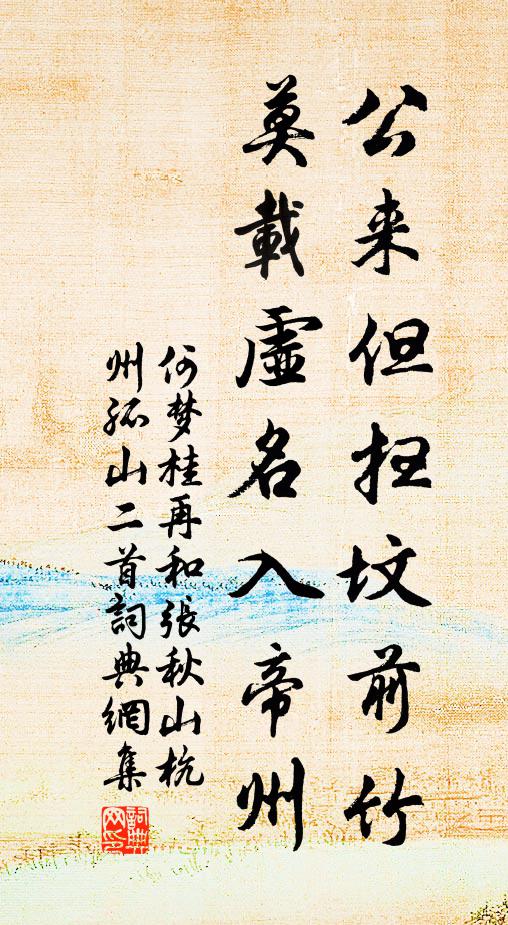 公来但扫坟前竹
莫載虛名入帝州
何梦桂再和張秋山杭
州孤山二首詞典網集
詞典
网印